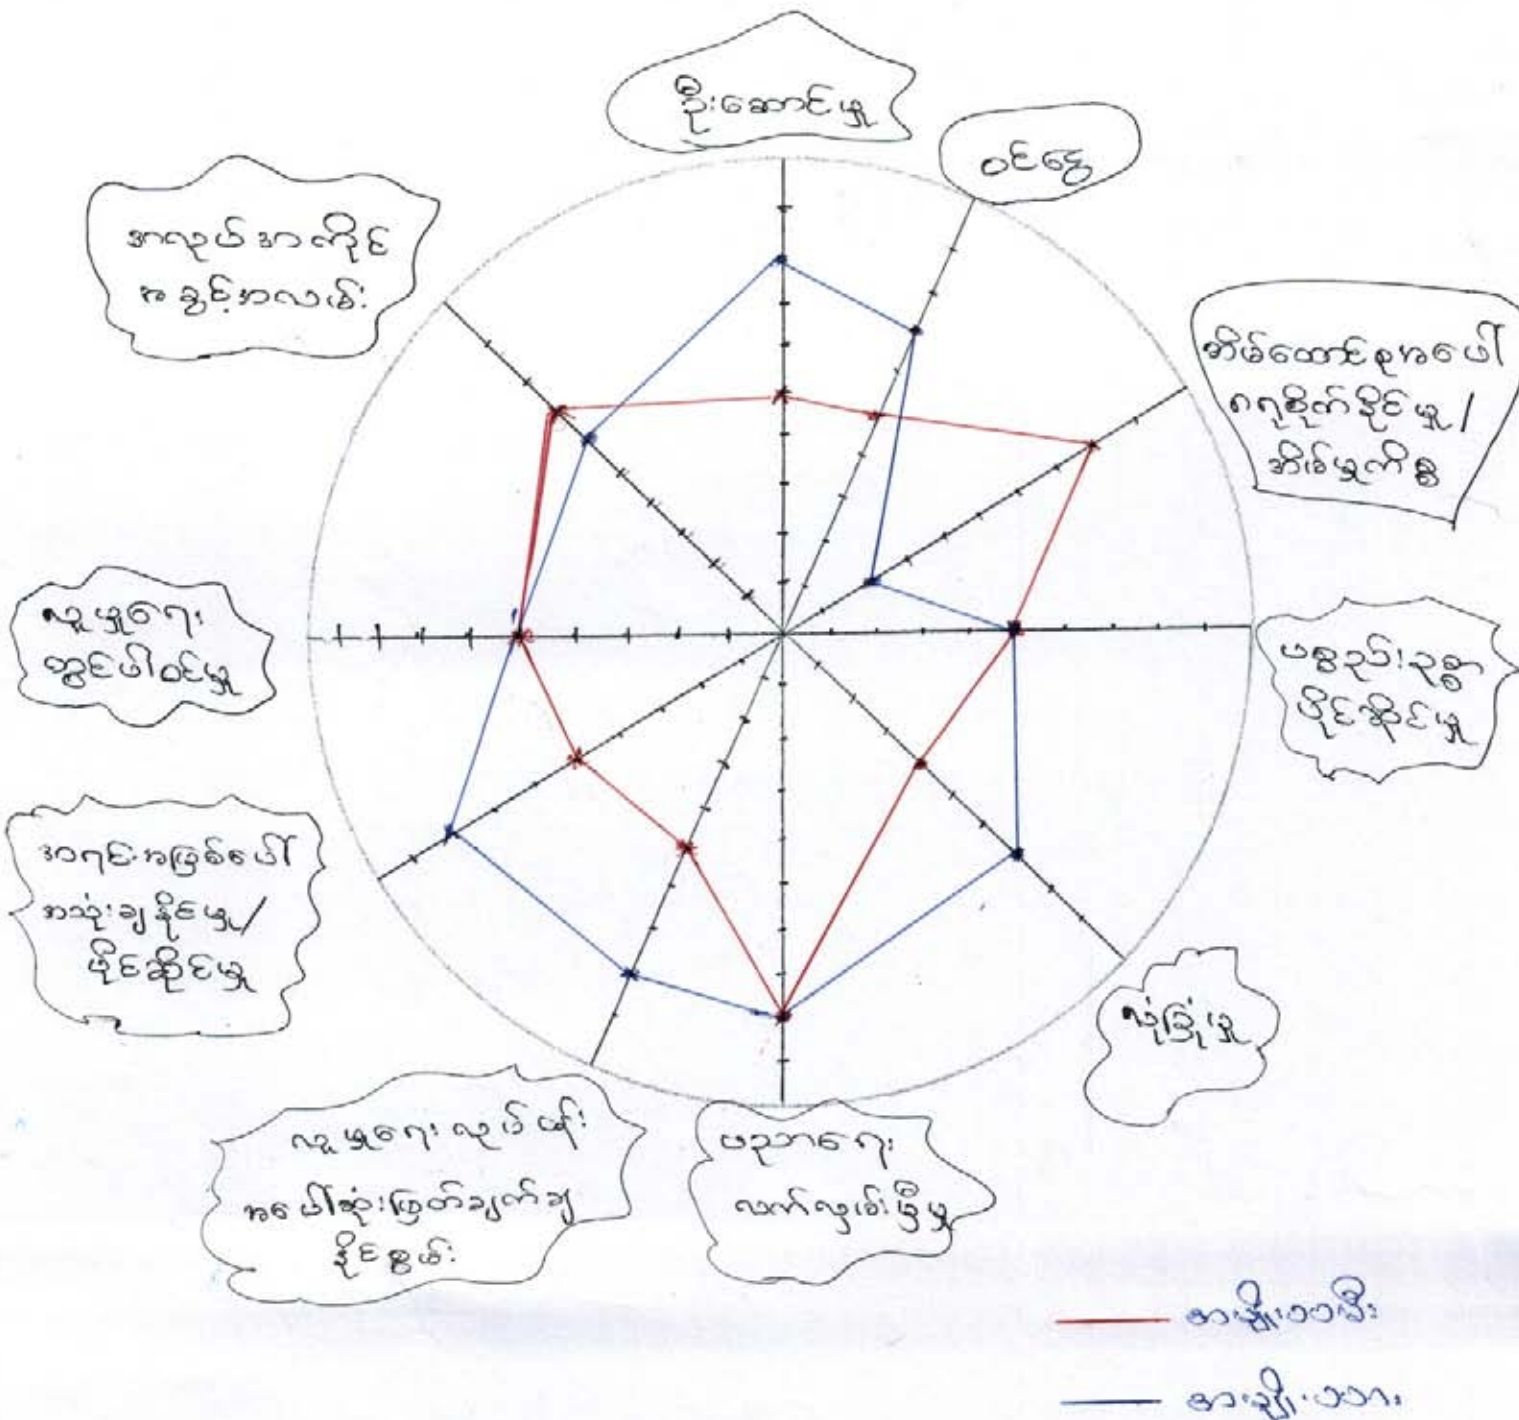 ဦးဆောင်မှု
ဝင်ငွေ
အိမ်ထောင်စုအပေါ်
ဂရုစိုက်နိုင်မှု /
အိမ်မှုကိစ္စ
ပစ္စည်းဥစ္စာ
ပိုင်ဆိုင်မှု
လုံခြုံမှု
ပညာရေး
လက်လှမ်းမှီမှု
လူမှုရေး လုပ်ငန်း
အပေါ်ဆုံးဖြတ်ချက်ချ
နိုင်စွမ်း
အရင်းအမြစ်ပေါ်
အသုံးချနိုင်မှု /
ပိုင်ဆိုင်မှု
လူမှုရေး
တွင်ပါဝင်မှု
အလုပ်အကိုင်
အခွင့်အလမ်း
အမျိုးသမီး
အမျိုးသား